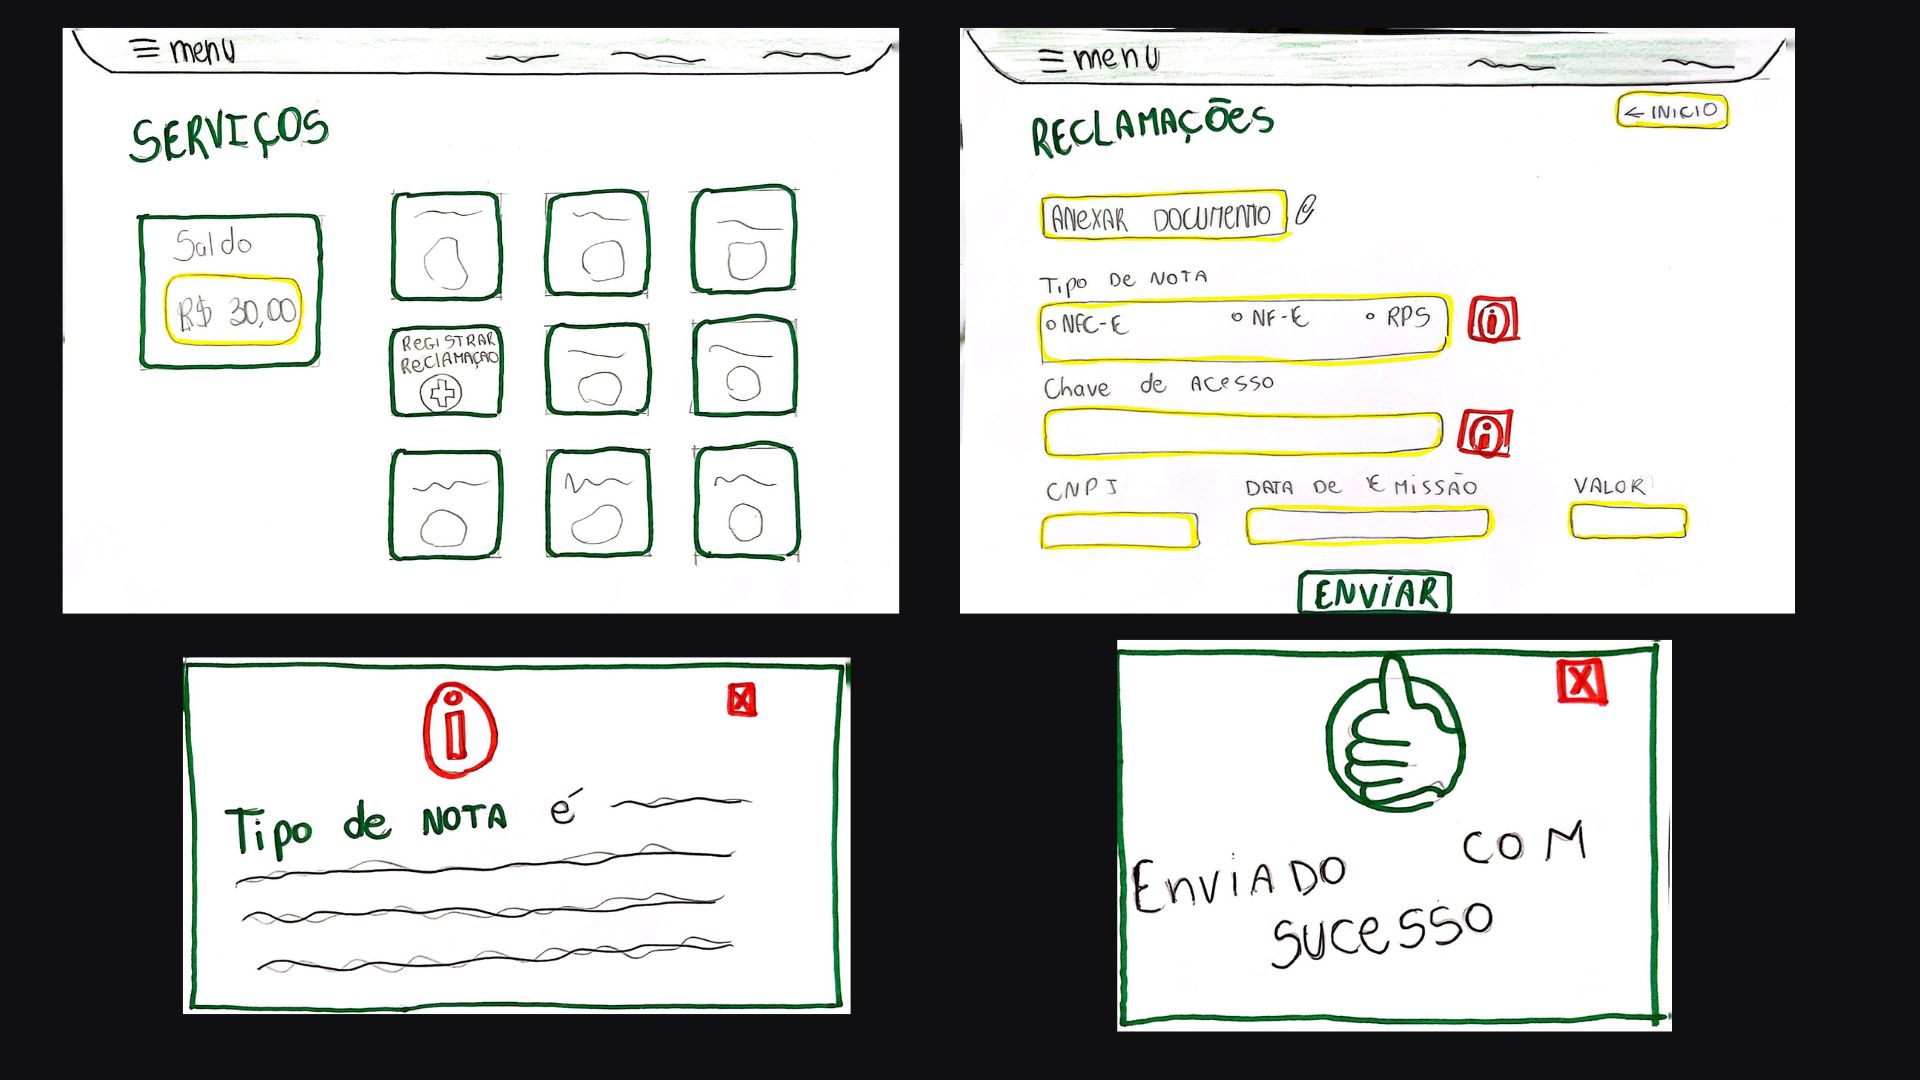 menu
SERVIÇOS
Saldo
R$ 30,00
REGISTRAR
RECLAMAÇÃO
menu
RECLAMAÇÕES
← INICIO
ANEXAR DOCUMENTO
Tipo de NOTA
NFC-E NF-E RPS
i
Chave de Acesso
i
CNPJ DATA DE EMISSÃO VALOR
ENVIAR
i
X
Tipo de NOTA é
X
ENVIADO COM
SUCESSO